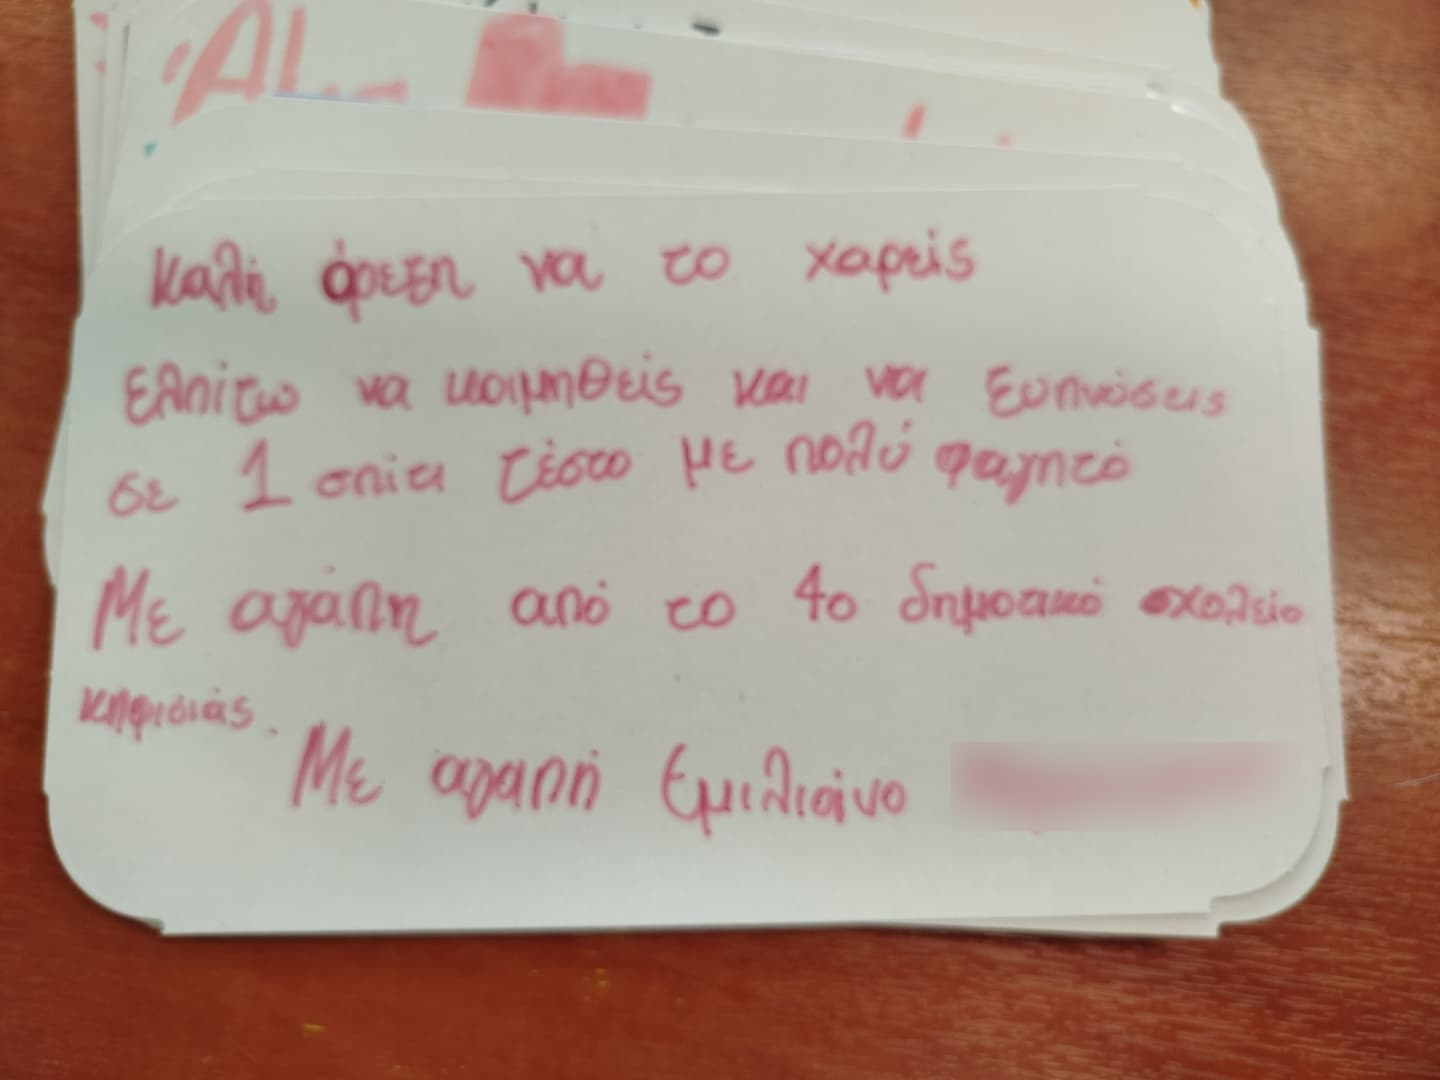 Αl
καλή όρεξη να το χαρείς
Ελπίζω να κοιμηθείς και να ξυπνύσεις
σε 1 σπίτι ζέστο με πολύ φαγητό
Με αγάπη από το 4ο δημοτικό σχολείο
κηφισιάς.
Με αγαπή Εμιλιάνο